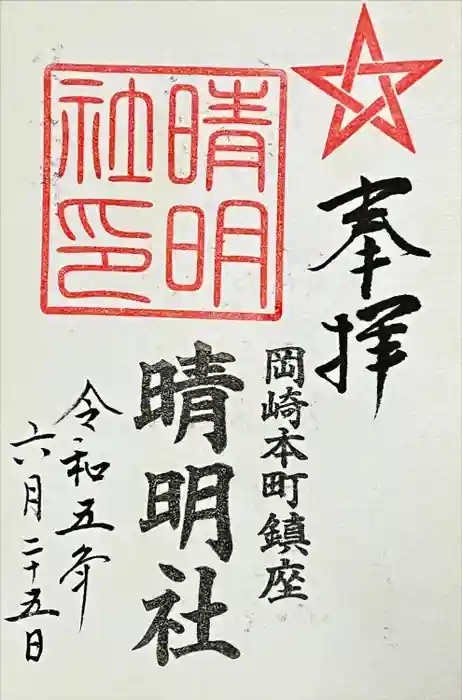 奉拝
岡崎本町鎮座
晴明
社印
晴明社
令和五年
六月二十五日